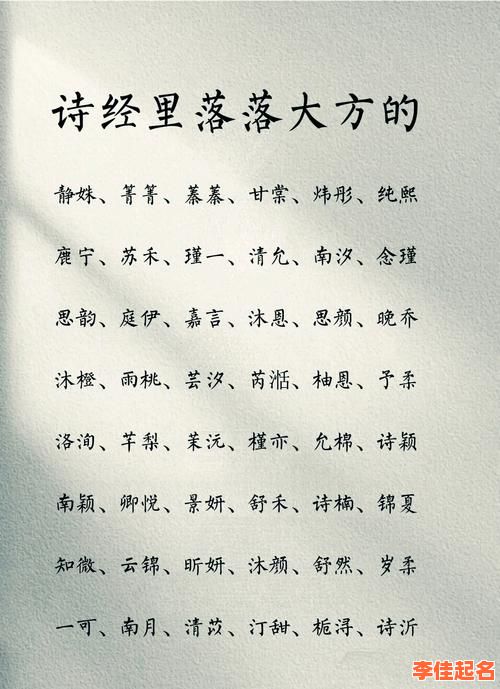 诗经里落落大方的
静姝、菁菁、蓁蓁、甘棠、炜彤、纯熙
鹿宁、苏禾、瑾一、清允、南汐、念瑾
思韵、庭伊、嘉言、沐恩、思颜、晚乔
沐橙、雨桃、芸汐、芮湉、柚恩、予柔
洛洵、芊梨、茉沅、槿亦、允棉、诗颖
南颖、卿悦、景妍、舒禾、诗楠、锦夏
知微、云锦、昕妍、沐颜、舒然、岁柔
一可、南月、清苡、汀甜、栀浔、诗沂
李佳起名